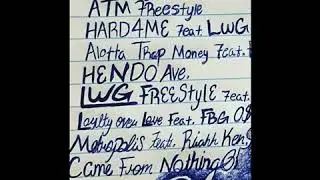 ATM Freestyle
HARD4ME Feat. LWG
Alotta Trap Money Feat.
HENDO Ave.
LWG FREEStyle Feat.
Loyalty over Love Feat. FBG
Metropolis Feat. Riahh Ken.
Came From Nothing